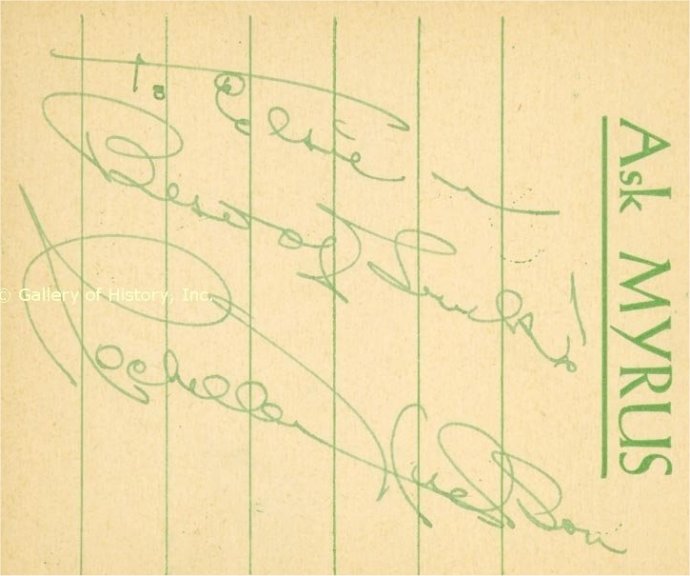 To Elsie
Best of Luck
Rochelle Hudson
Ask MYRUS
© Gallery of History, Inc.